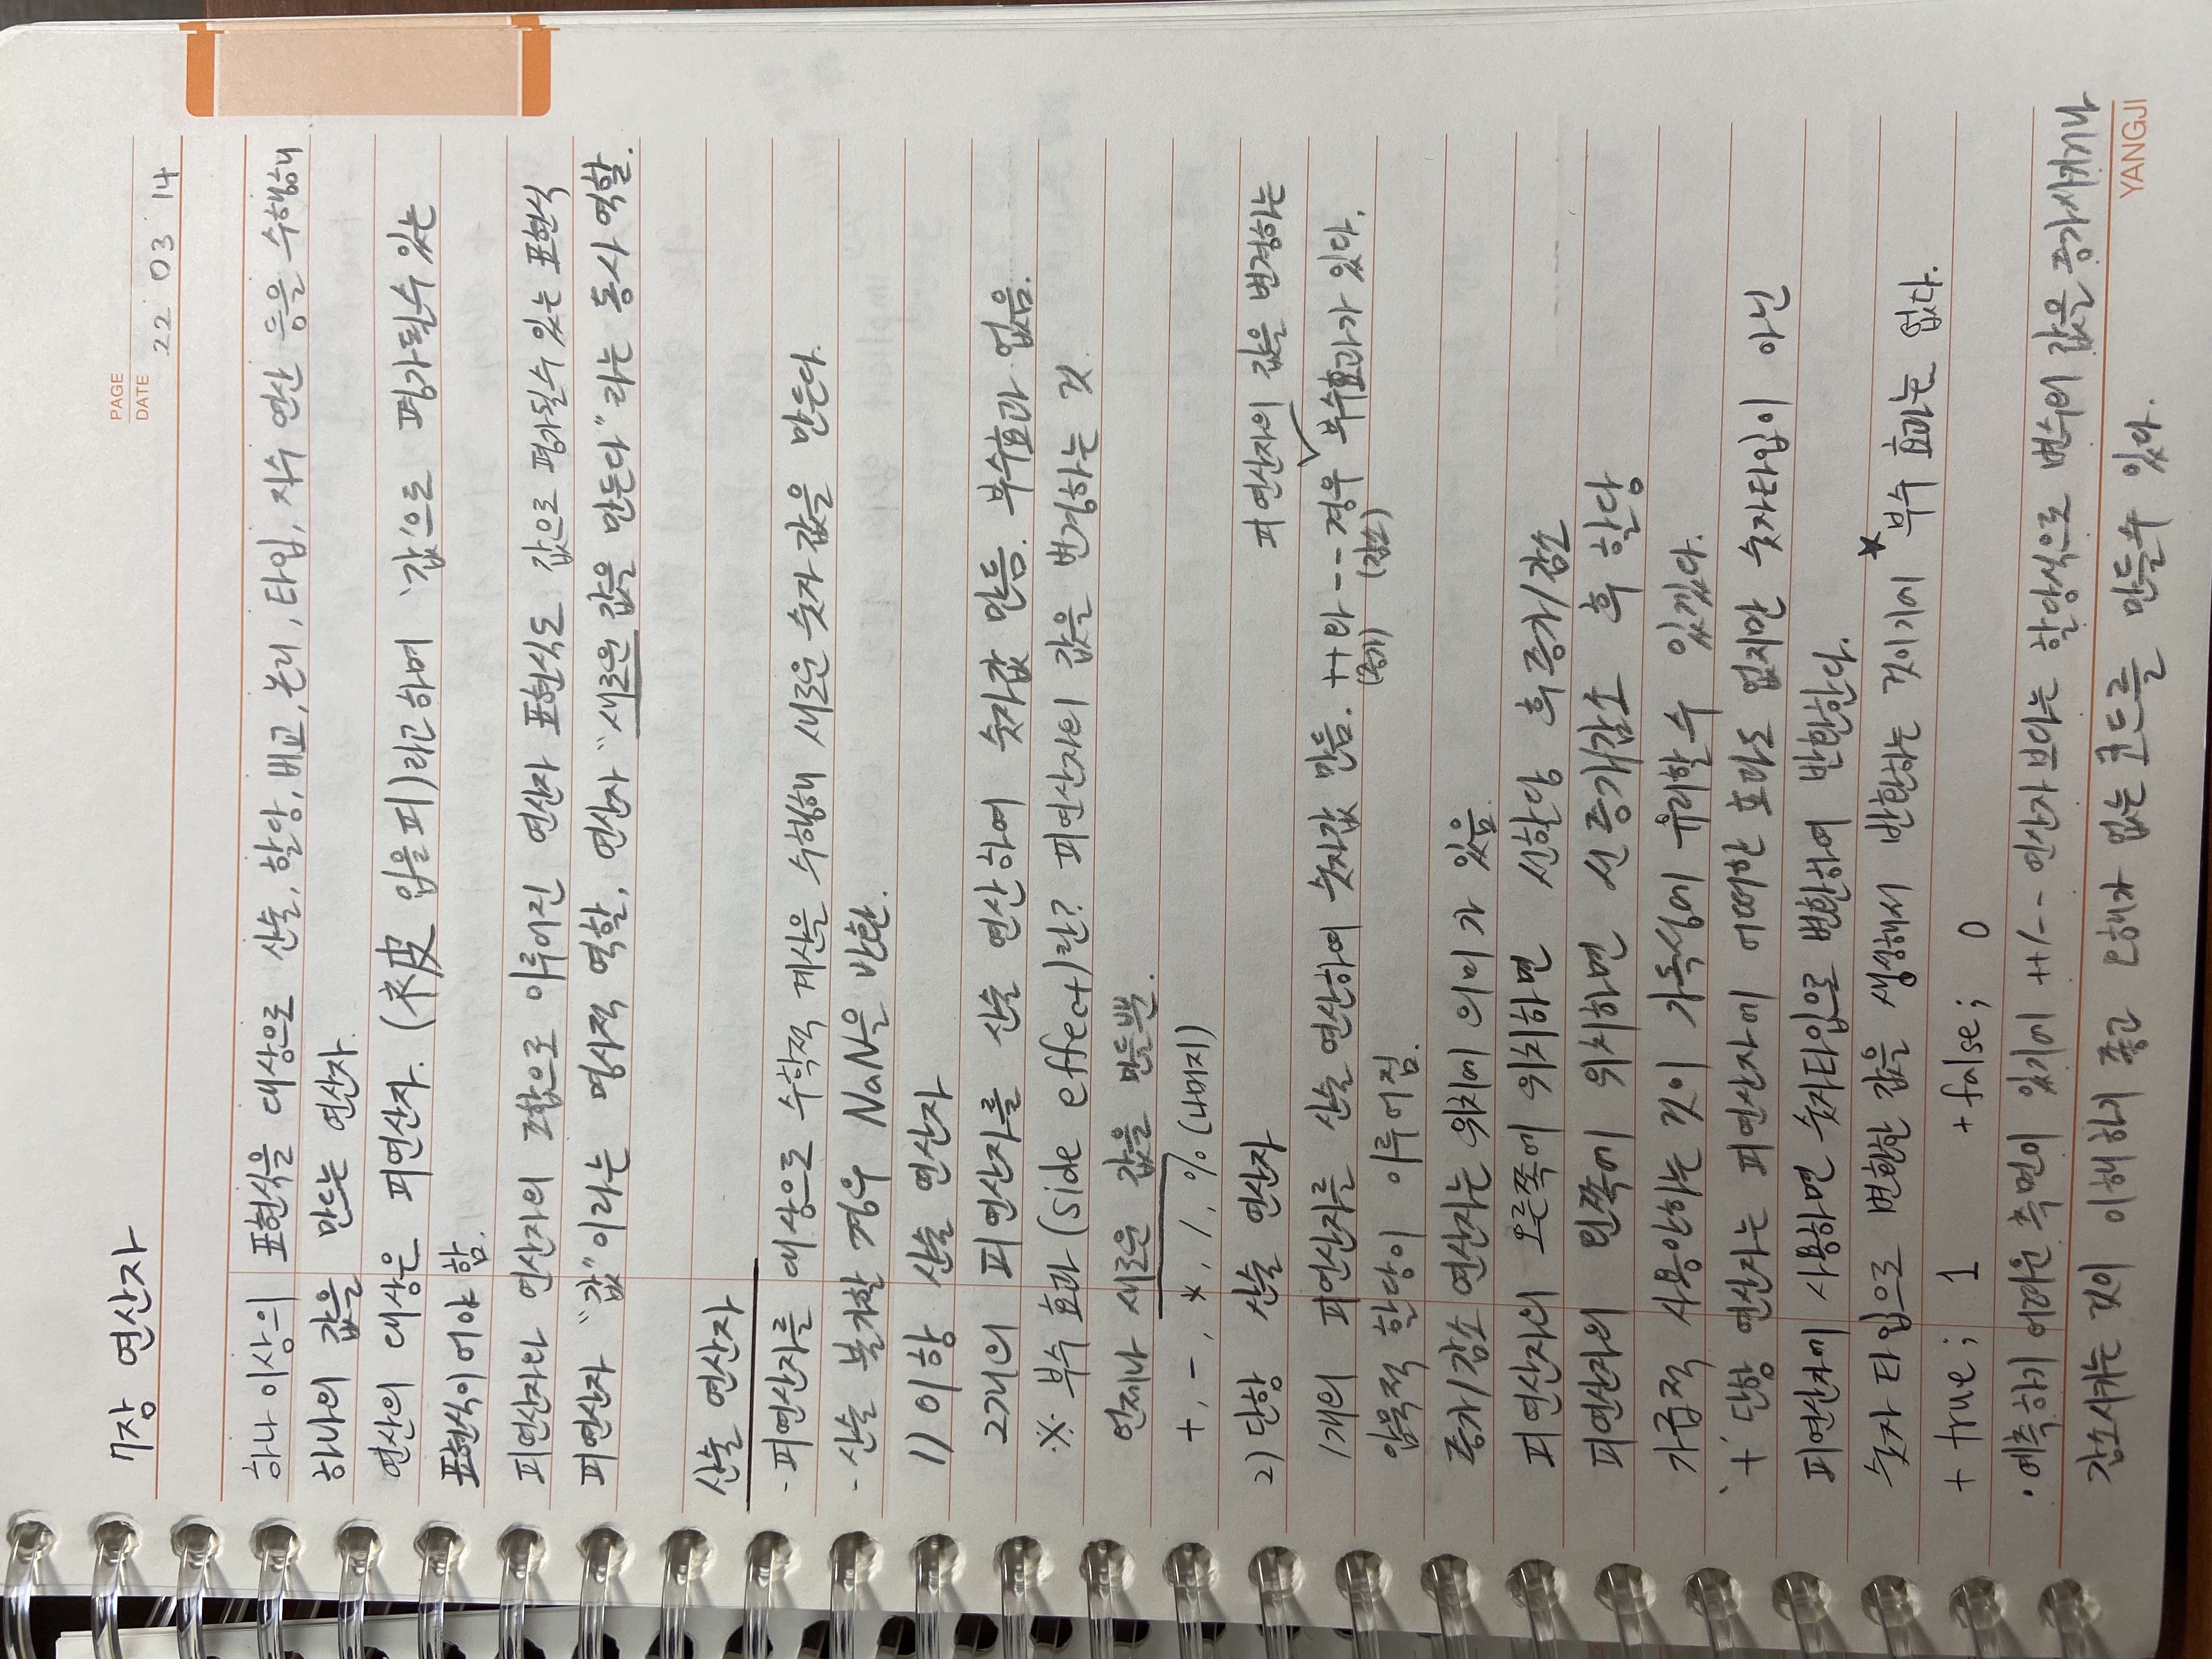 7장 연산자
PAGE
DATE 22 03 14
하나 이상의 표현식을 대상으로 산술, 할당, 비교, 논리, 타입, 지수 연산 등을 수행해
하나의 값을 만드는 연산자.
연산의 대상은 피연산자. (被 입을 피)라고 하며 '값'으로 평가될 수 있는
표현식이어야 함.
피연산자와 연산자의 조합으로 이루어진 연산자 표현식도 값으로 평가될 수 있는 표현식
피연산자 "값"이라는 명사적 역할, 연산자 "새로운 값을 만든다"라는 동사 역할.
산술 연산자
- 피연산자를 대상으로 수학적 계산을 수행해 새로운 숫자 값을 만든다.
- 산술 불가할 경우 NaN을 반환.
1) 이항 산술 연산자
2개의 피연산자를 산술 연산하여 숫자값 만듬. 부수효과 없음.
※ 부수 효과 (side effect)란? 피연산자의 값을 변경하는 것.
언제나 새로운 값을 만들뿐.
+, -, *, /, % (나머지)
2) 단항 산술 연산자
피연산자의 값을 변경하는
1개의 피연산자를 산술 연산하여 숫자값 만듬. ++와 -- 경우 ✓부수효과가 있다.
(증가) (감소)
암묵적 할당이 이루어짐.
증가/감소 연산자는 위치에 의미가 있음.
피연산자의 오른쪽에 위치하면 선할당 후 증가/감소
피연산자의 왼쪽에 위치하면 선 증가/감소 후 할당
가급적 사용안하는 것이 가독성에 유리할 수 있겠다.
'+' 단항 연산자는 피연산자에 어떠한 효과도 없지만 숫자타입이 아닌
피연산자에 사용하면 숫자타입으로 변환하여 반환한다.
숫자 타입으로 변환한 값을 생성해서 반환하는 것이기에 ★부수 효과는 없다.
+ true; 1 + false; 0
· 예측하기 어려운 측면이 있기에 ++/-- 연산자 보다는 할당식으로 변수의 값을 증가시키거나
감소시키는 것이 이해하기 좋고 오해가 없는 코드를 만들수 있다.
YANGJI